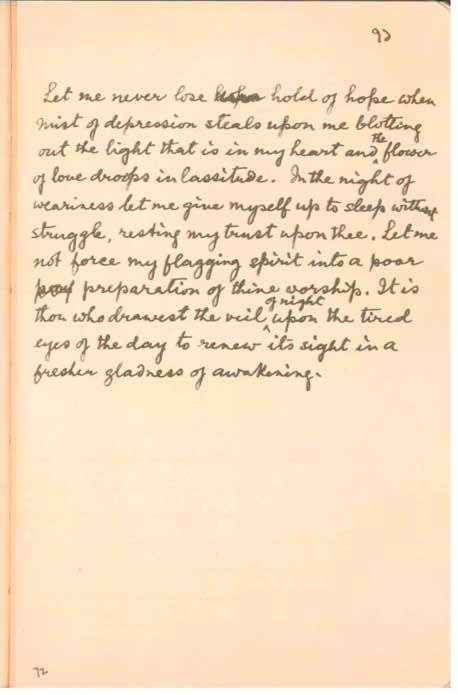 Let me never lose hold of hope when
mist of depression steals upon me blotting
out the light that is in my heart and the flower
of love droops in lassitude. In the night of
weariness let me give myself up to sleep without
struggle, resting my trust upon thee. Let me
not force my flagging spirit into a poor
preparation of thine worship. It is
thou who drawest the veil of night upon the tired
eyes of the day to renew its sight in a
fresher gladness of awakening.
72